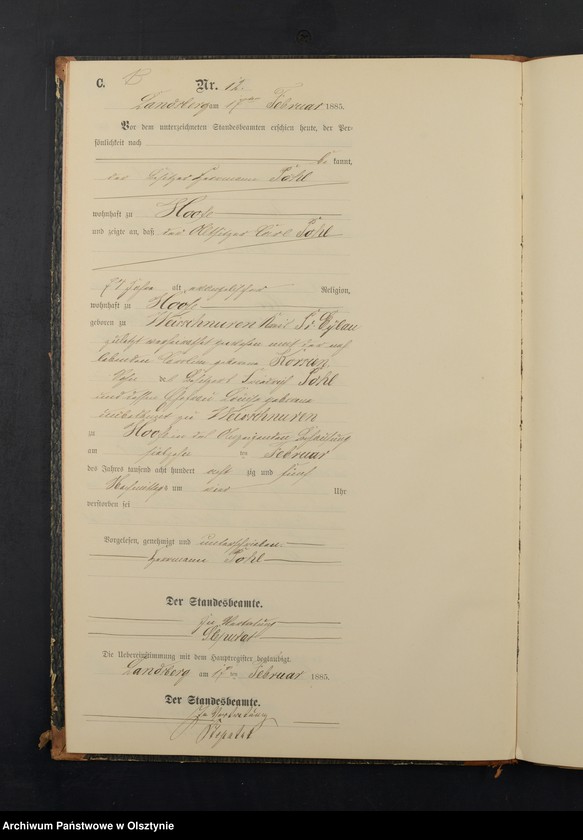 C. B Nr. 12.
Landsberg am 17ten Februar 1885.
Vor dem unterzeichneten Standesbeamten erschien heute, der Per-
sönlichkeit nach
be kannt,
der Besitzer Herrmann Pohl
wohnhaft zu Hoofe
und zeigte an, daß der Altsitzer Carl Pohl
77 Jahre alt, evangelischer Religion,
wohnhaft zu Hoofe
geboren zu Warschnuren Kreis Pr Eylau
zuletzt verheirathet gewesen mit der noch
lebenden Caroline geborene
Sohn des Pohl
und dessen Ehefrau Louise geborene
zu Warschnuren
zu Hoofe in des Angezeigenden Behausung
am siebzehn ten Februar
des Jahres tausend acht hundert acht zig und fünf
Nachmittags um Uhr
verstorben sei
Vorgelesen, genehmigt und unterschrieben
Herrmann Pohl
Der Standesbeamte.
In Vertretung
Die Uebereinstimmung mit dem Hauptregister beglaubigt.
Landsberg am 17 ten Februar 1885.
Der Standesbeamte.
In Vertretung
Archiwum Państwowe w Olsztynie